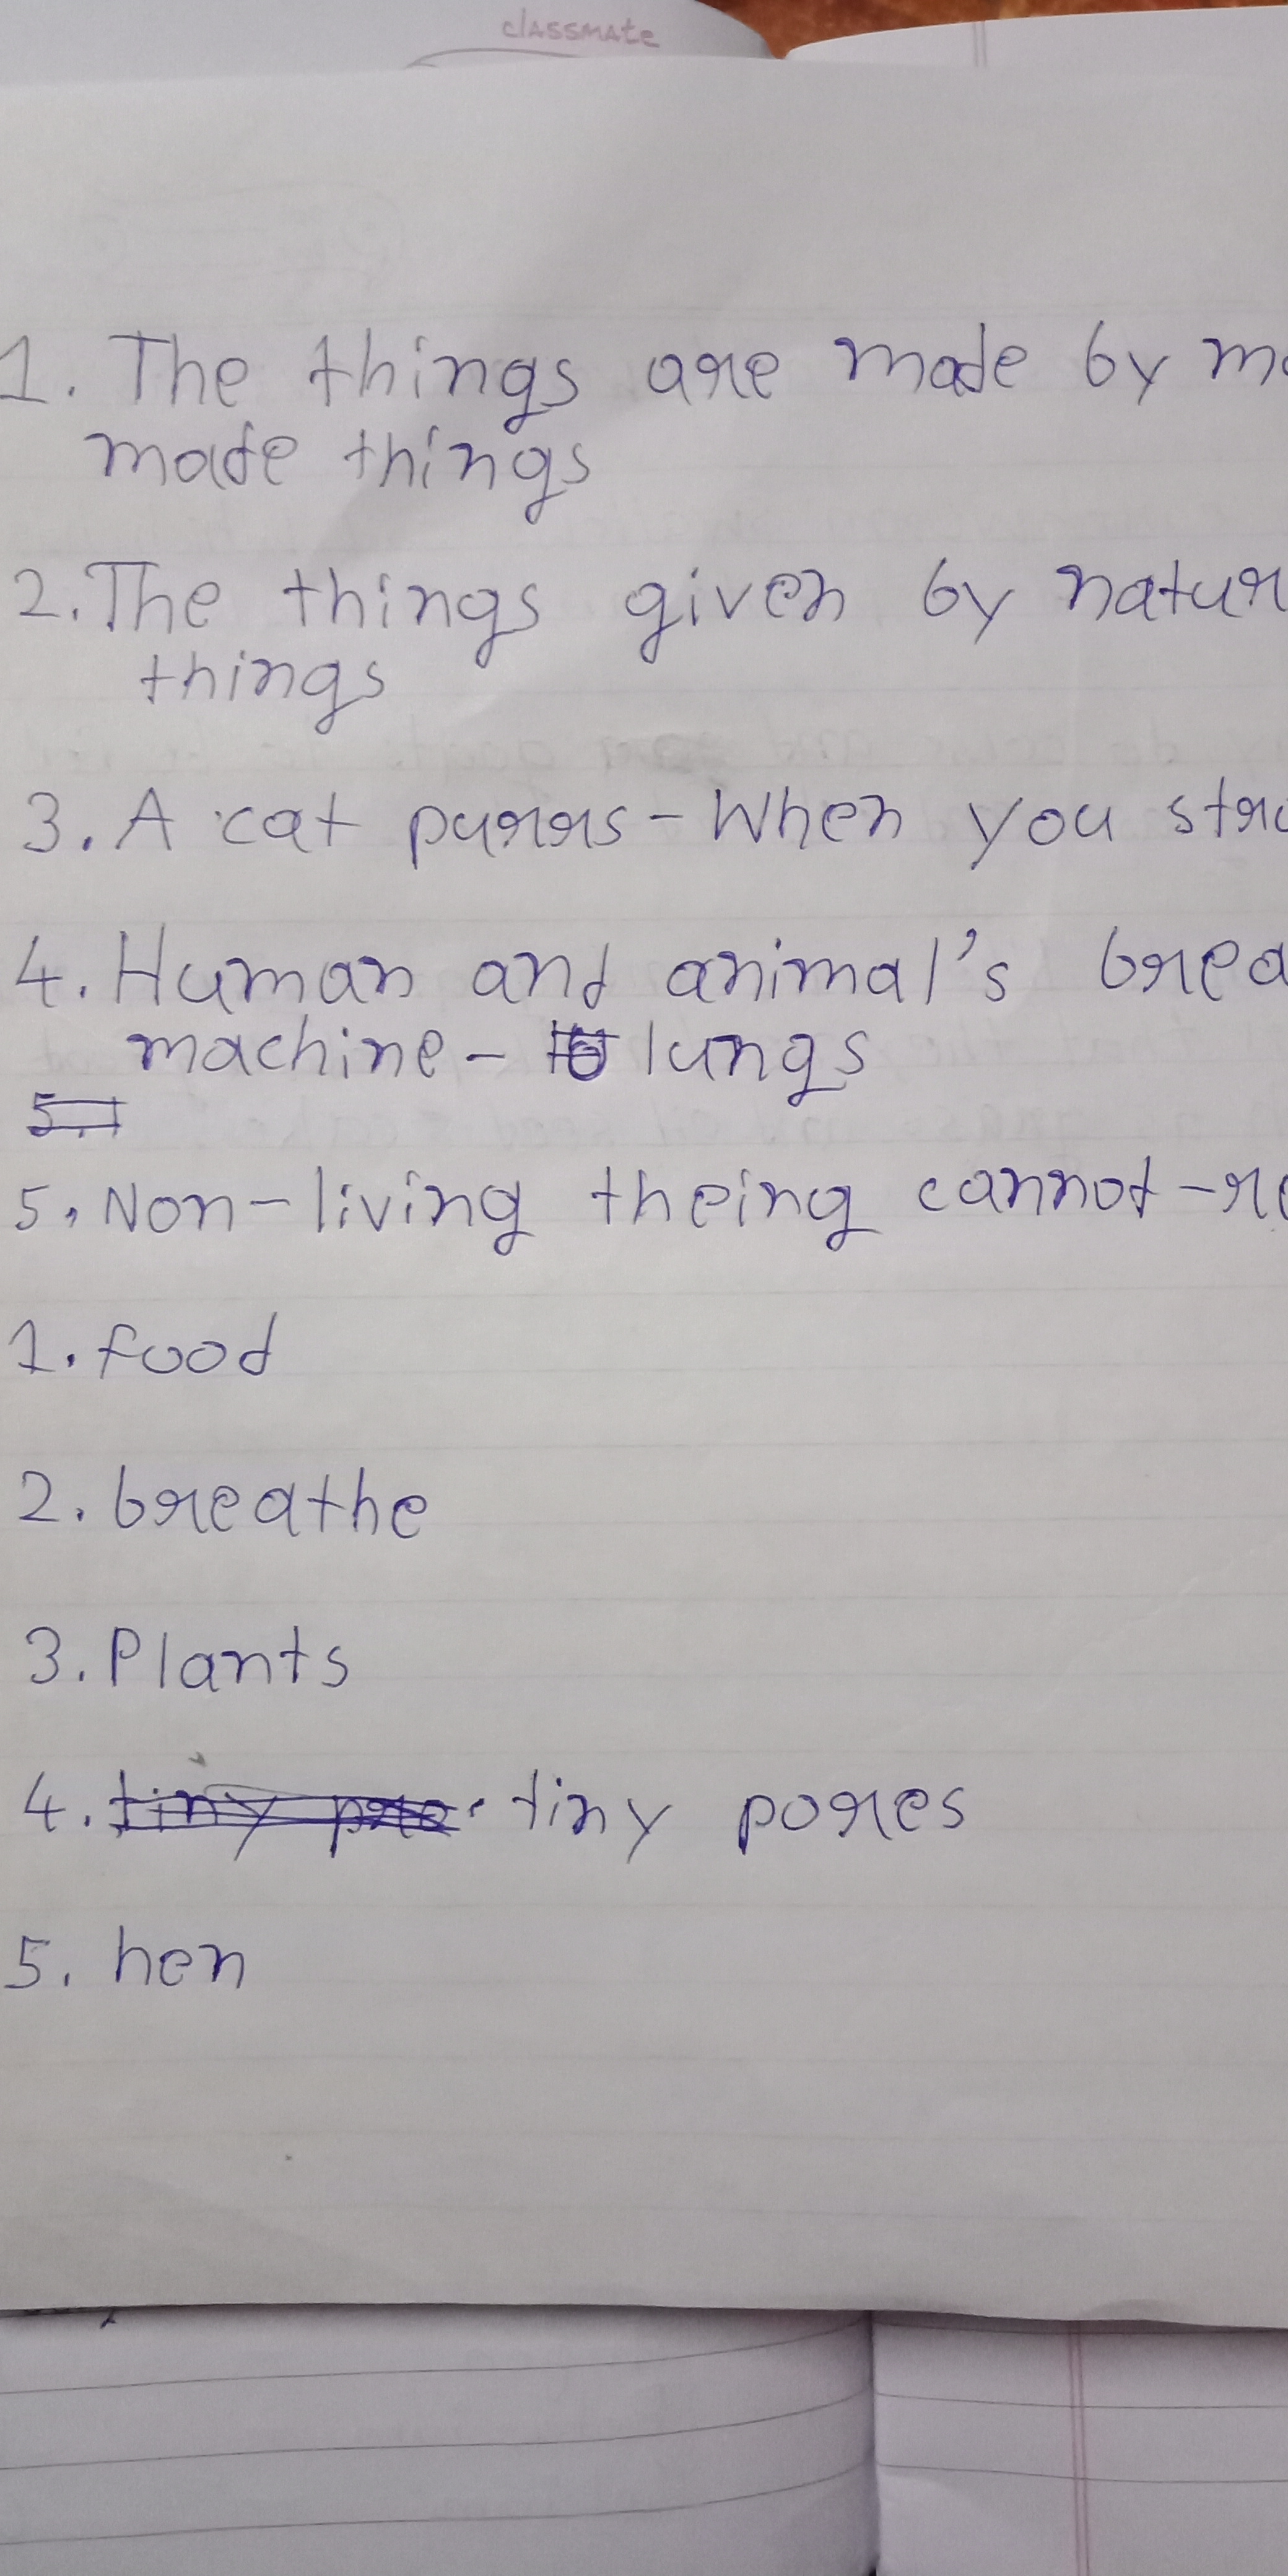 classmate
1. The things are made by
made things
2. The things given by
things
3. A cat purrs - When you
4. Human and animal's
machine - lungs
5. Non-living theing cannot -
1. food
2. breathe
3. Plants
4. tiny pores
5. hen